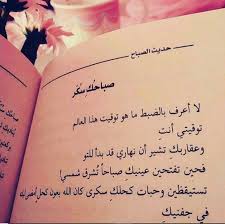 حديث الصباح
صباحُكِ سكَر
لا أعرف بالضبط ما هو توقيت هذا العالم
توقيتي أنتِ
وعقاربك تشير أن نهاري قد بدأ للتو
فحين تفتحين عينيك صباحاً تُشرق شمسي!
تستيقظين وحبات كحلكِ سكرى كان الله بعون كحلٍ
في جفنيك